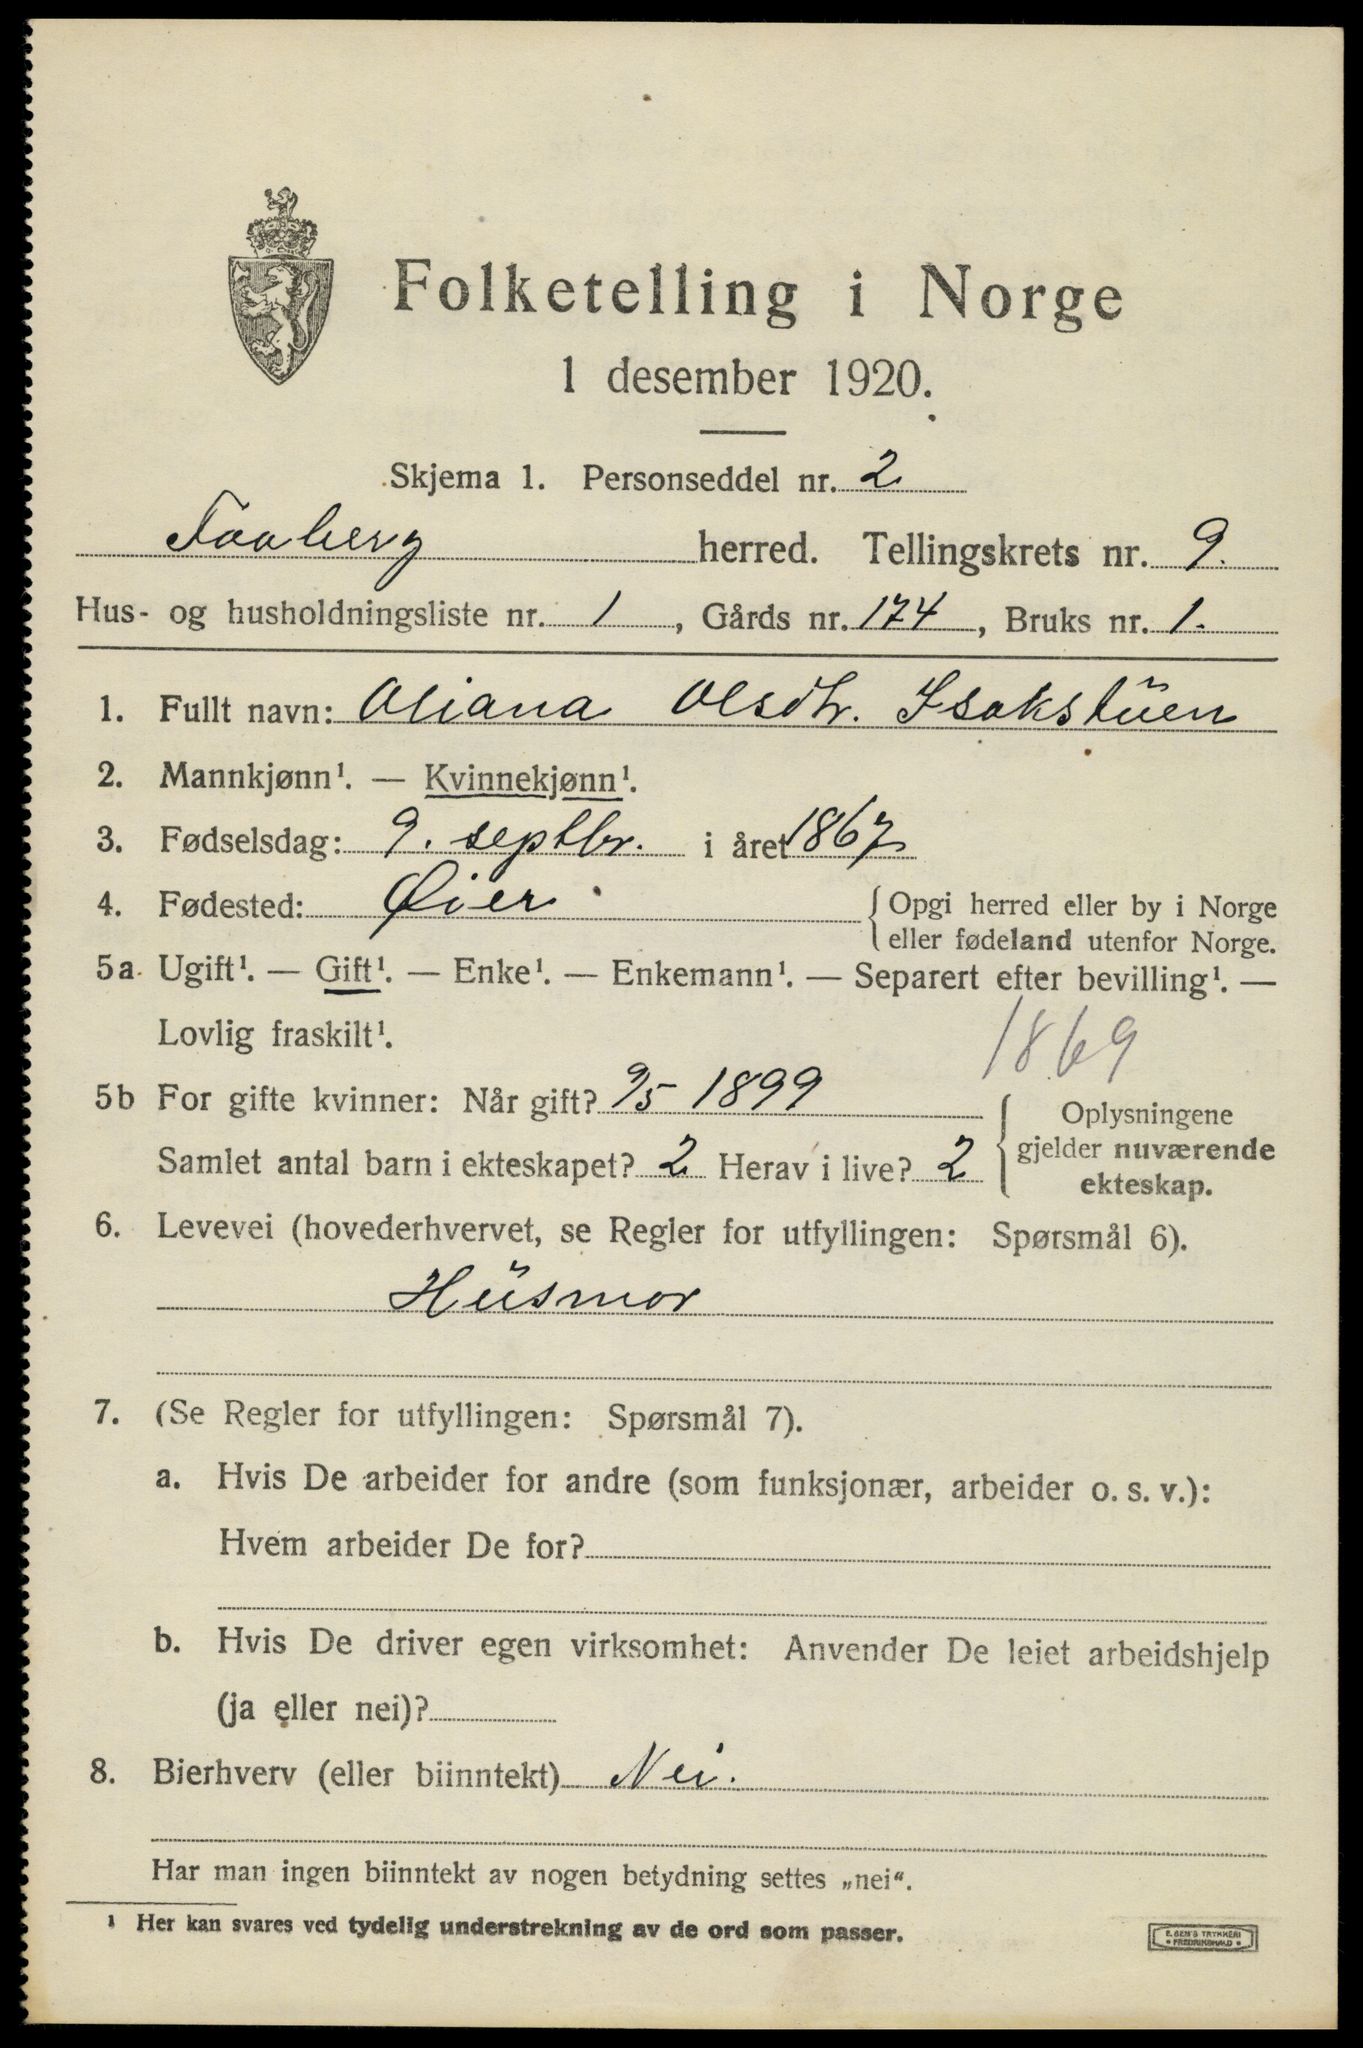 Folketelling i Norge
1 desember 1920.
Skjema 1. Personseddel nr. 2
Faaberg herred. Tellingskrets nr. 9.
Hus- og husholdningsliste nr. 1, Gårds nr. 174, Bruks nr. 1.
1. Fullt navn: Oliana Olsdtr. Isakstuen
2. Mannkjønn¹. — Kvinnekjønn¹.
3. Fødselsdag: 9. septbr. i året 1867
4. Fødested: Øier { Opgi herred eller by i Norge
eller fødeland utenfor Norge.
5a Ugift¹. — Gift¹. — Enke¹. — Enkemann¹. — Separert efter bevilling¹. —
Lovlig fraskilt¹.
1869
5b For gifte kvinner: Når gift? 9/5 1899
Samlet antal barn i ekteskapet? 2 Herav i live? 2
{ Oplysningene
gjelder nuværende
ekteskap.
6. Levevei (hovederhvervet, se Regler for utfyllingen: Spørsmål 6).
Husmor
7. (Se Regler for utfyllingen: Spørsmål 7).
a. Hvis De arbeider for andre (som funksjonær, arbeider o. s. v.):
Hvem arbeider De for?
b. Hvis De driver egen virksomhet: Anvender De leiet arbeidshjelp
(ja eller nei)?
8. Bierhverv (eller biinntekt) Nei.
Har man ingen biinntekt av nogen betydning settes „nei“.
¹ Her kan svares ved tydelig understrekning av de ord som passer.
E. SEM'S TRYKKERI
• FREDRIKSHALD •